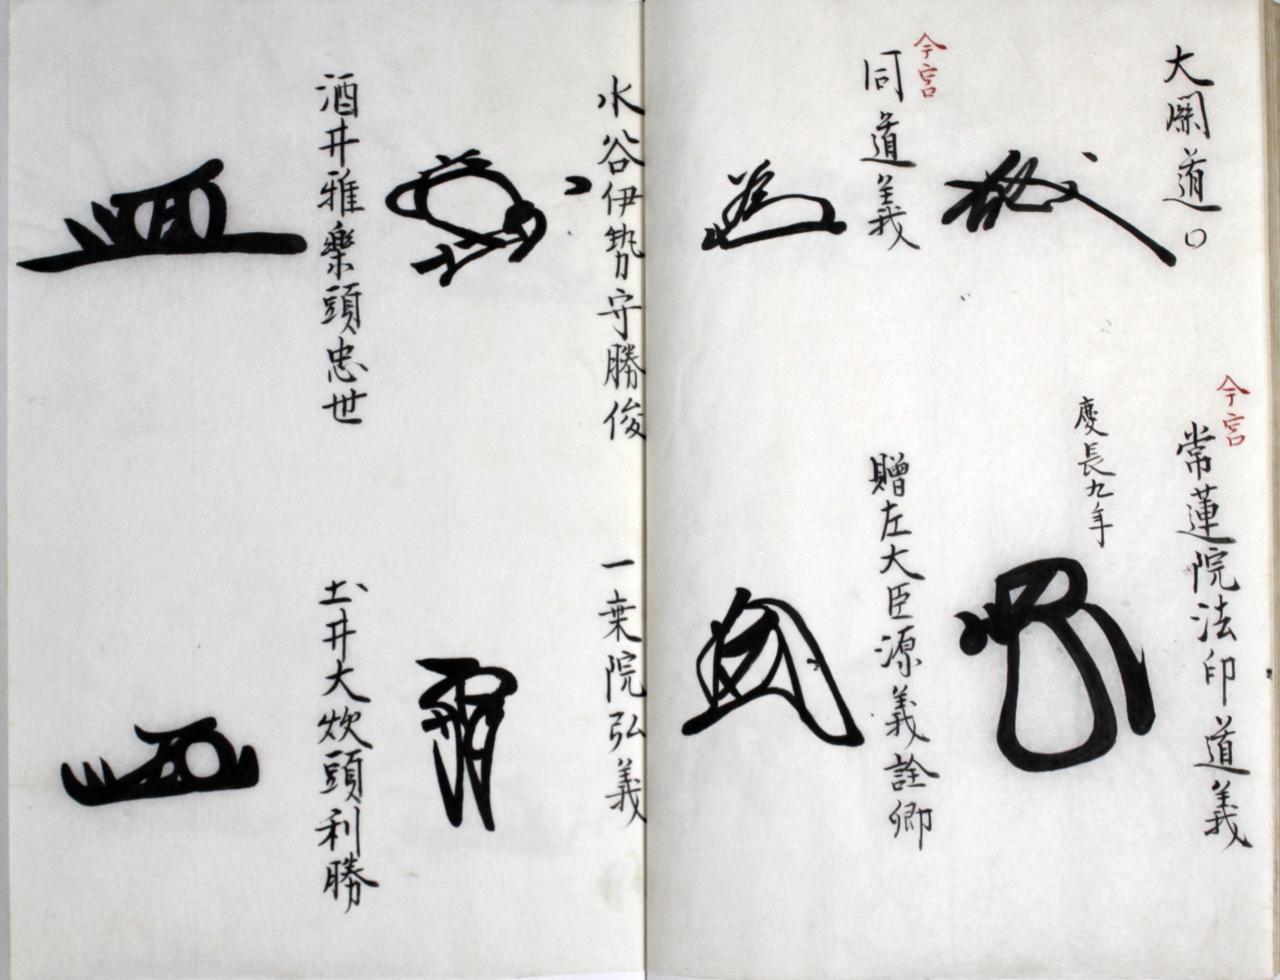 大関道〇
今宮
常蓮院法印道義
慶長九年
今宮
同道義
贈左大臣源義詮卿
水谷伊勢守勝俊
一乗院弘義
酒井雅楽頭忠世
土井大炊頭利勝